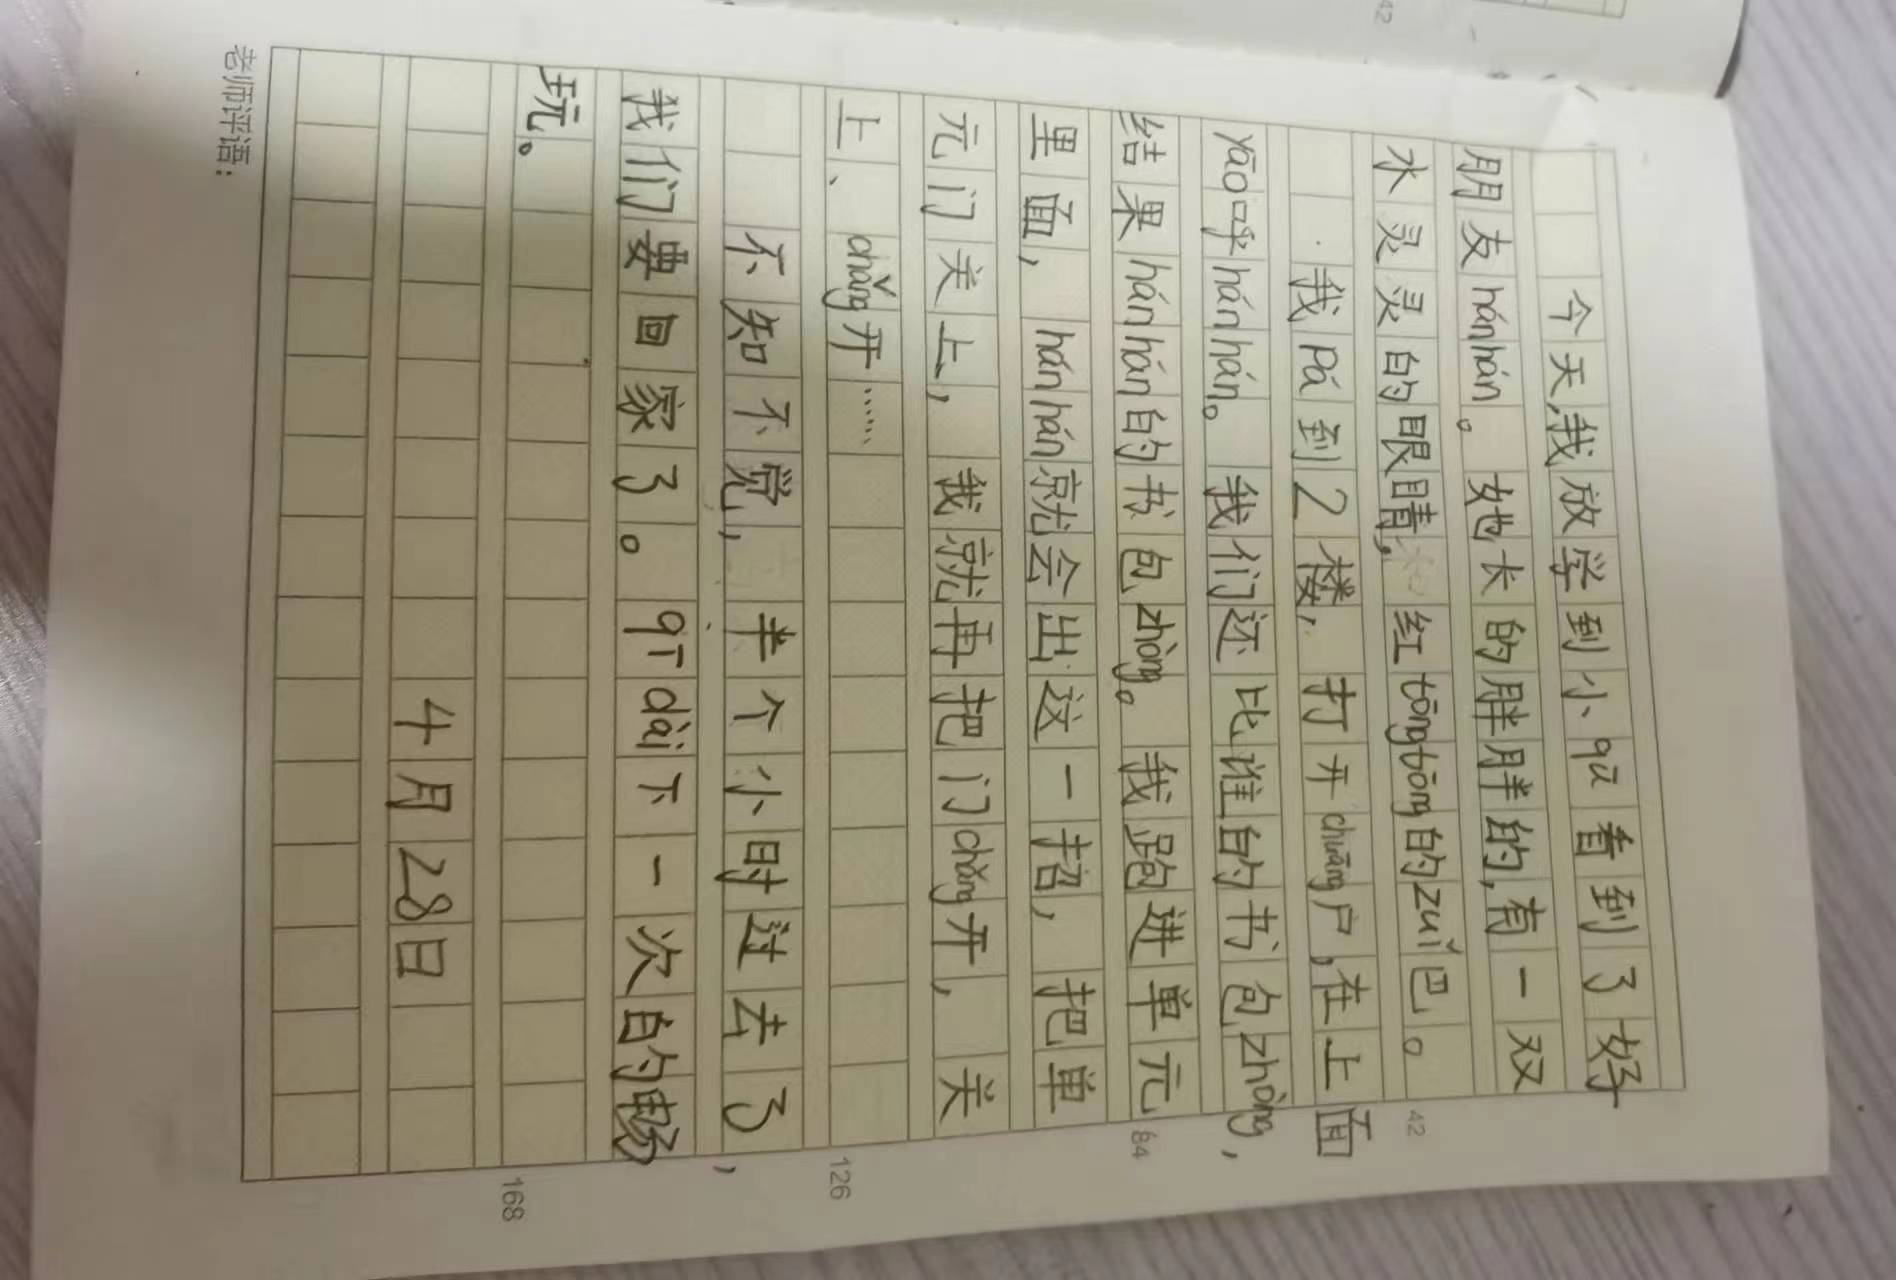 今天,我放学到小qū看到了好
朋友hánhán。她长的胖胖的,有一双
水灵灵的眼睛,红tōngtōng的zuǐ巴。
我pá到2楼,打开chuāng户,在上面
yāo呼hánhán。我们还比谁的书包zhòng,
结果hánhán的书包zhòng。我跑进单元
里面,hánhán就会出这一招,把单
元门关上,我就再把门chǎng开,关
上、chǎng开……
不知不觉,半个小时过去了,
我们要回家了。qī dài下一次的畅
玩。
4月28日
老师评语:
42
84
126
168
42